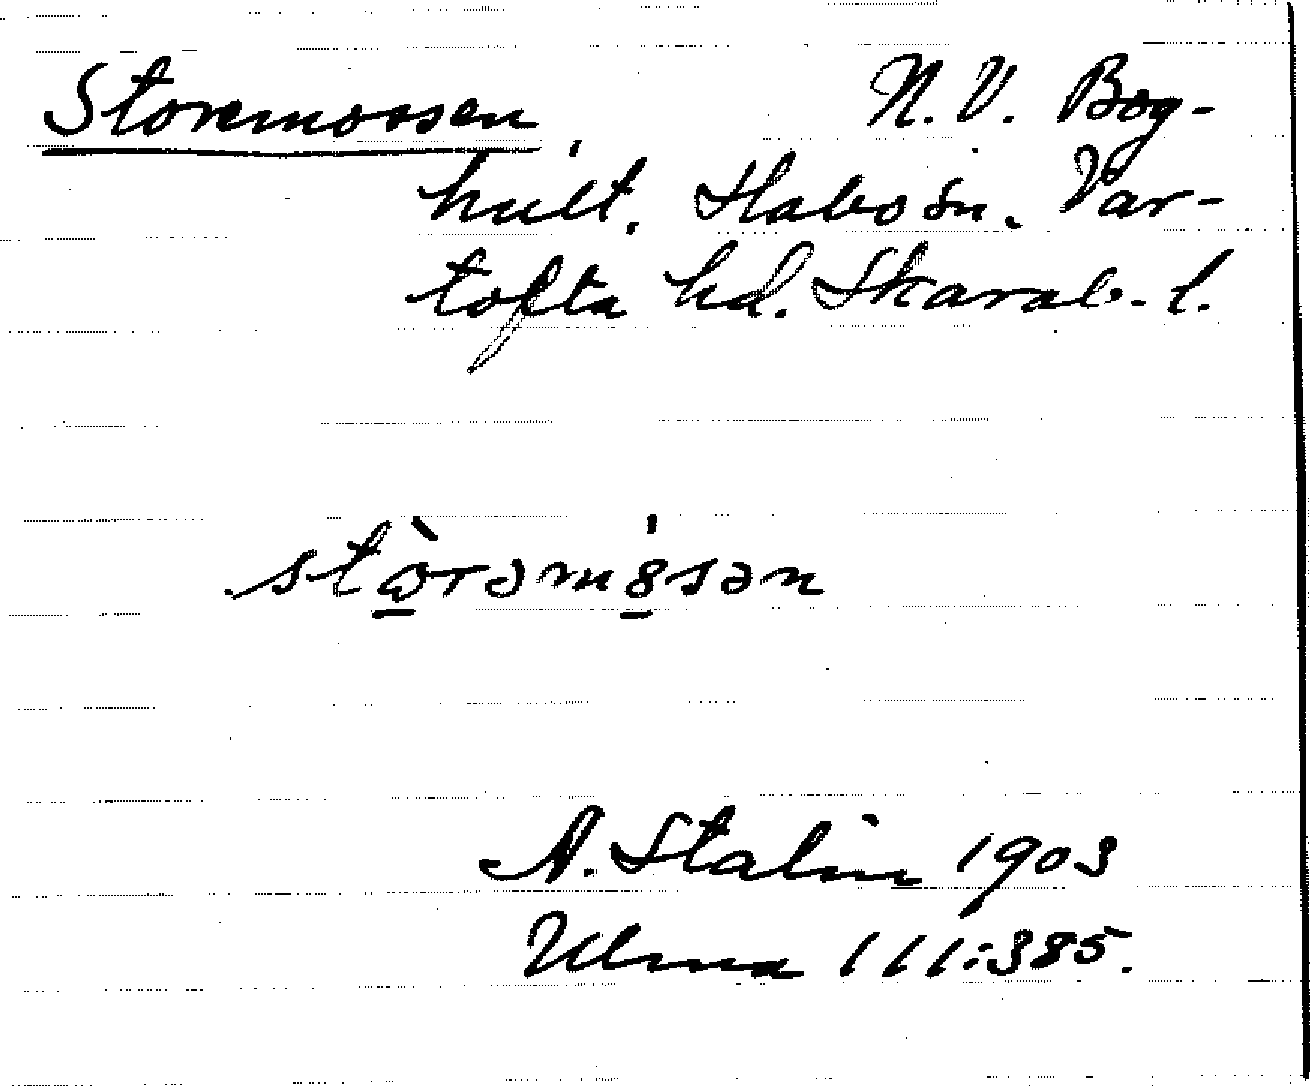 Storemossen, N.V. Bog-
hult. Habo sn. Var-
tofta hd. Skarab. l.
stòrəmósən
A. Stalin 1903
Ulma 111:385.